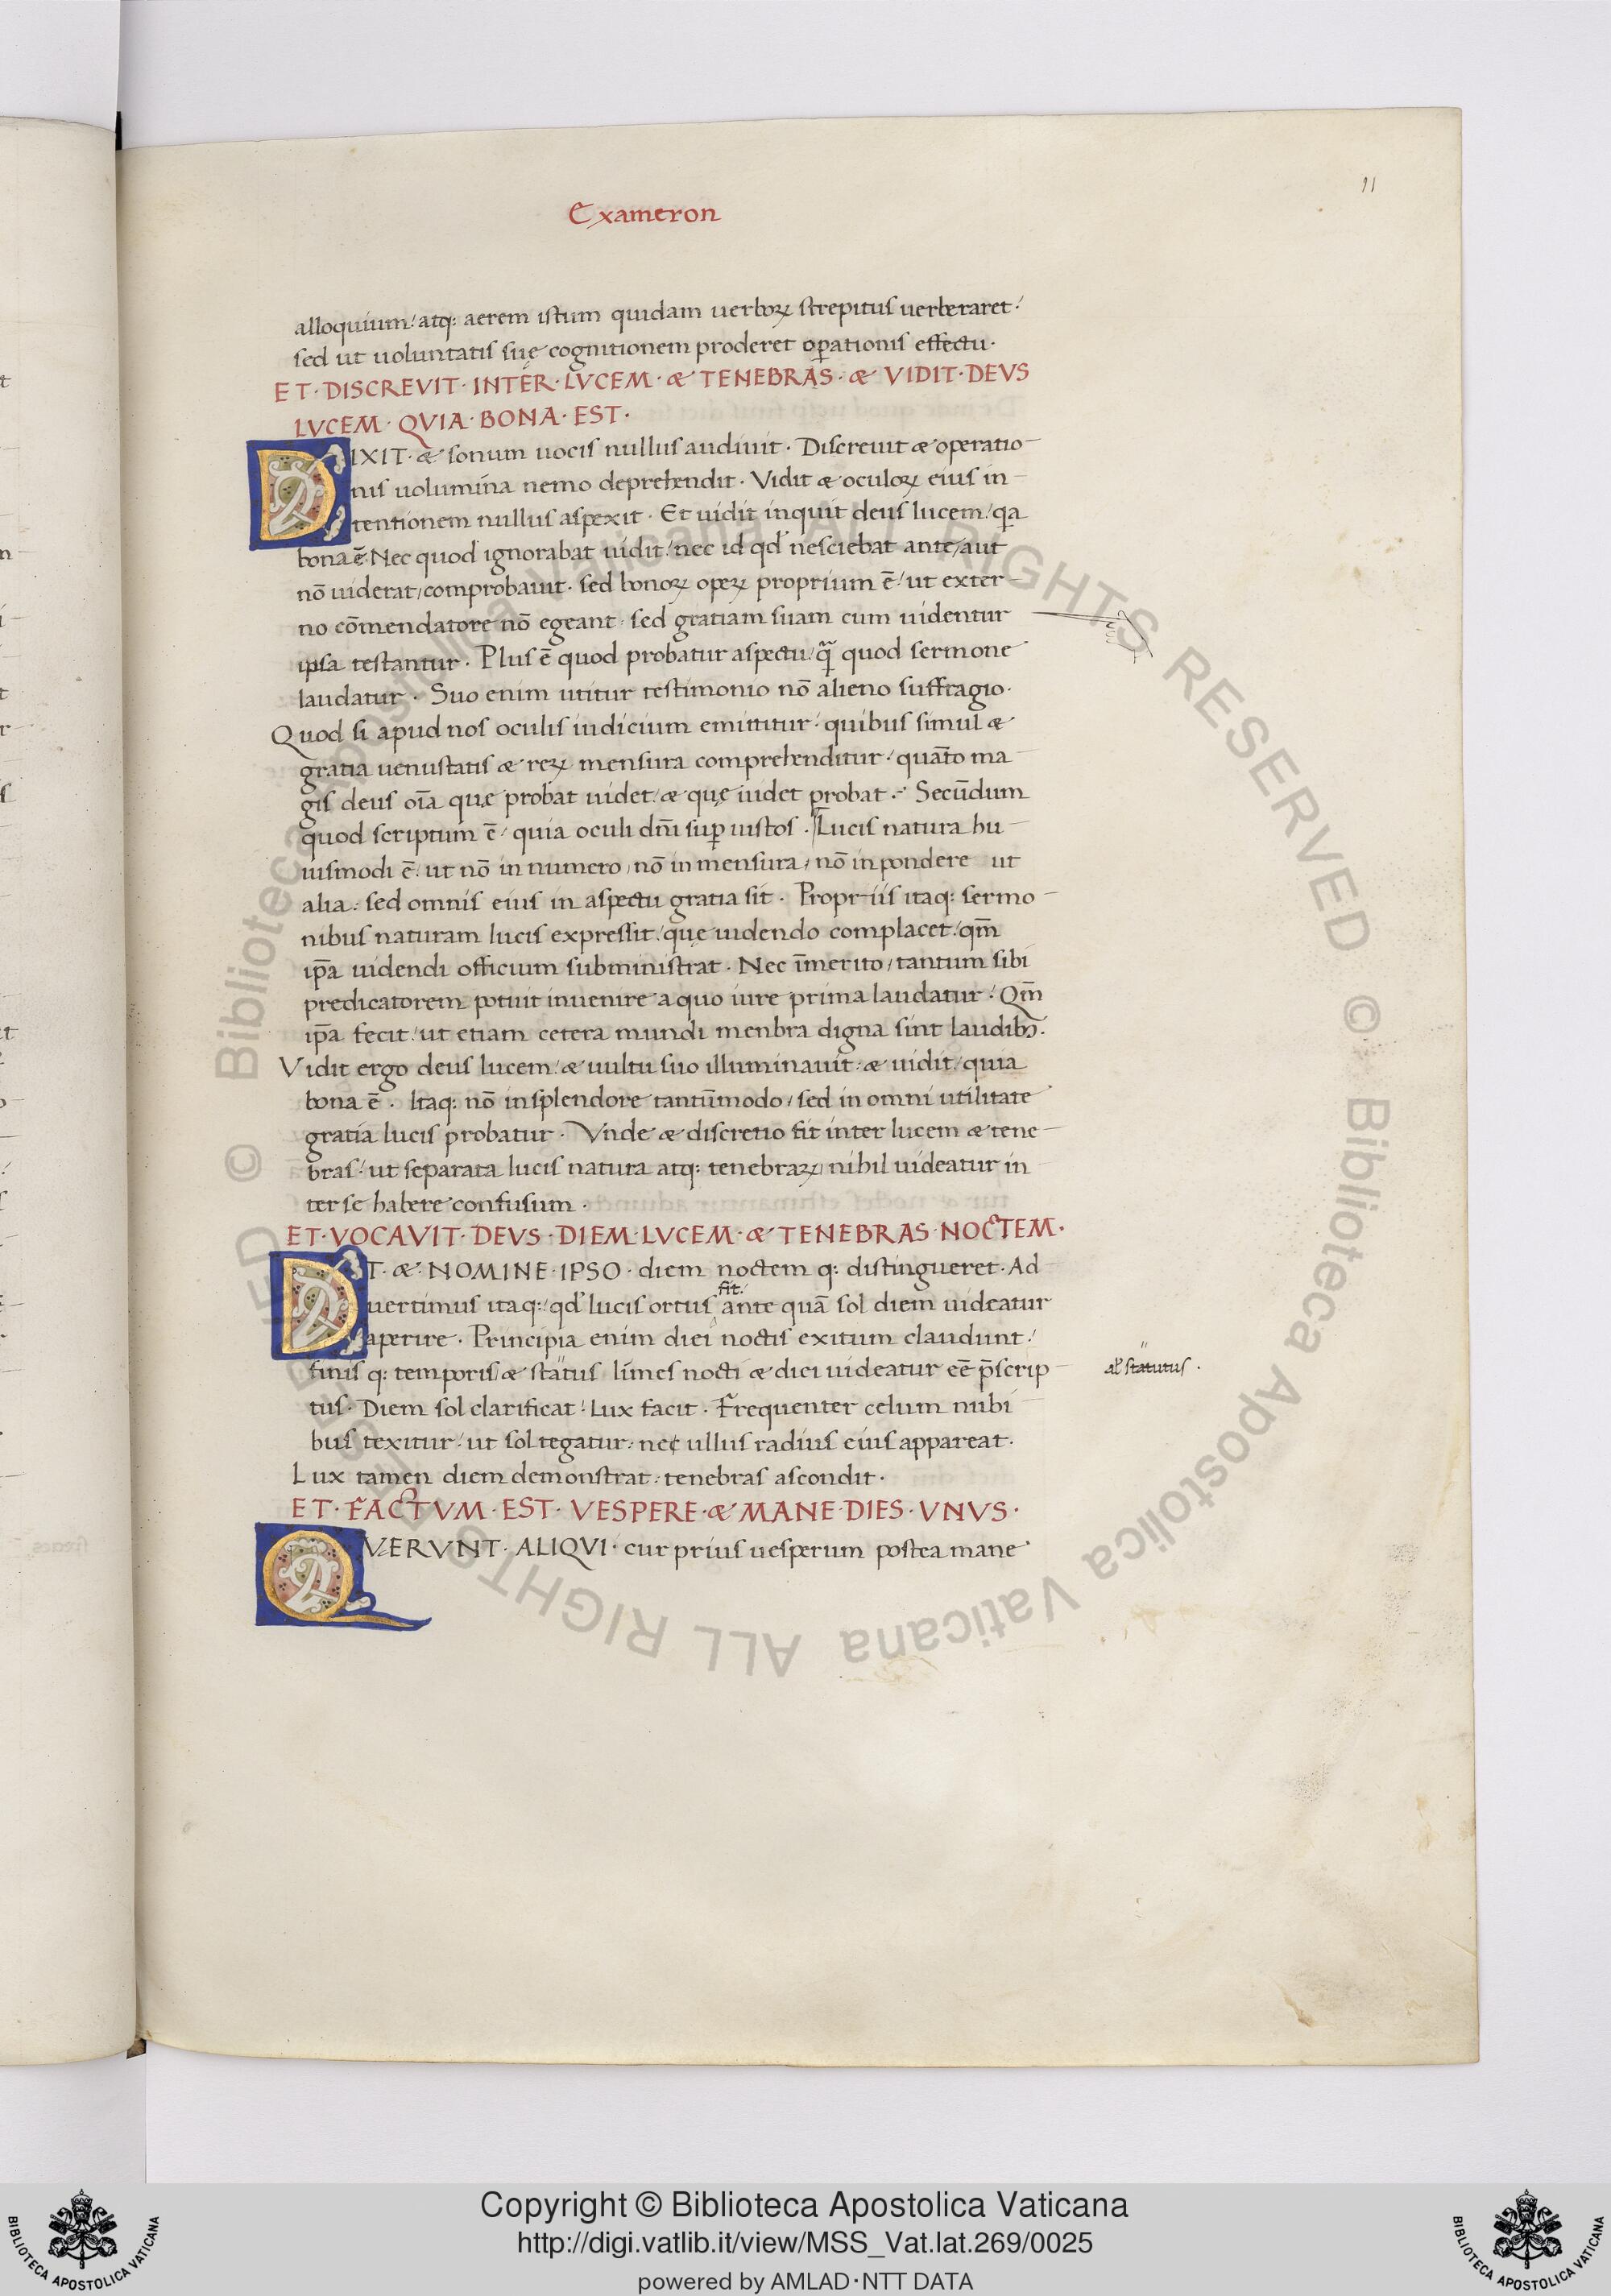 11
Exameron
alloquium: atq: aerem istum quidam uerboꝝ strepitus uerberaret:
sed ut uoluntatis suę cognitionem proderet oꝑationis effectu.
ET· DISCREVIT· INTER· LVCEM· & TENEBRAS· & VIDIT· DEVS
LVCEM· QVIA· BONA· EST·
DIXIT· & sonum uocis nullus audiuit· Discreuit & operatio-
nis uolumina nemo deprehendit· Vidit & oculoꝝ eius in-
tentionem nullus aspexit· Et uidit inquit deus lucem/ qa
bona ē· Nec quod ignorabat uidit/ nec id qd' nesciebat ante/ aut
nō uiderat/ comprobauit· sed bonoꝝ opeꝝ proprium ē/ ut exter-
no cōmendatore nō egeant· sed gratiam suam cum uidentur
ipsa testantur· Plus ē quod probatur aspectu/ q̄ quod sermone
laudatur· Suo enim utitur testimonio nō alieno suffragio·
Quod si apud nos oculis iudicium emittitur· quibus simul &
gratia uenustatis & reꝝ mensura comprehenditur· quāto ma
gis deus oīa quę probat uidet/ & quę uidet probat· Secūdum
quod scriptum ē/ quia oculi dn̄i suꝑ iustos· Lucis natura hu-
iusmodi ē/ ut nō in numero/ nō in mensura/ nō in pondere ut
alia: sed omnis eius in aspectu gratia sit· Propriis itaq: sermo-
nibus naturam lucis expressit/ quę uidendo complacet/ qm̄
ip̄a uidendi officium subministrat· Nec īmerito/ tantum sibi
predicatorem potuit inuenire a quo iure prima laudatur· Qm̄
ip̄a fecit/ ut etiam cetera mundi menbra digna sint laudibꝫ.
Vidit ergo deus lucem/ & uultu suo illuminauit· & uidit/ quia
bona ē· Itaq: nō in splendore tantūmodo/ sed in omni utilitate
gratia lucis probatur· Vnde & discretio fit inter lucem & tene-
bras/ ut separata lucis natura atq: tenebraꝝ/ nihil uideatur in
ter se habere confusum·
ET· VOCAVIT· DEVS· DIEM· LVCEM· & TENEBRAS· NOCTEM·
DT· & NOMINE· IPSO· diem noctem q: distingueret· Ad
fit·
uertimus itaq:/ qd' lucis ortus ante quā sol diem uideatur
aperire· Principia enim diei noctis exitum claudunt/
finis q: temporis/ & status limes nocti & diei uideatur eē p̄scrip-
al' statutus·
tus· Diem sol clarificat/ Lux facit· Frequenter celum nubi
bus texitur/ ut sol tegatur: nec ullus radius eius appareat·
Lux tamen diem demonstrat: tenebras ascondit·
ET· FACTVM· EST· VESPERE· & MANE· DIES· VNVS·
QVERVNT· ALIQVI· cur prius uesperum postea mane
Copyright © Biblioteca Apostolica Vaticana
http://digi.vatlib.it/view/MSS_Vat.lat.269/0025
powered by AMLAD·NTT DATA
BIBLIOTECA APOSTOLICA VATICANA
BIBLIOTECA APOSTOLICA VATICANA
© Biblioteca Apostolica Vaticana ALL RIGHTS RESERVED
© Biblioteca Apostolica Vaticana ALL RIGHTS RESERVED